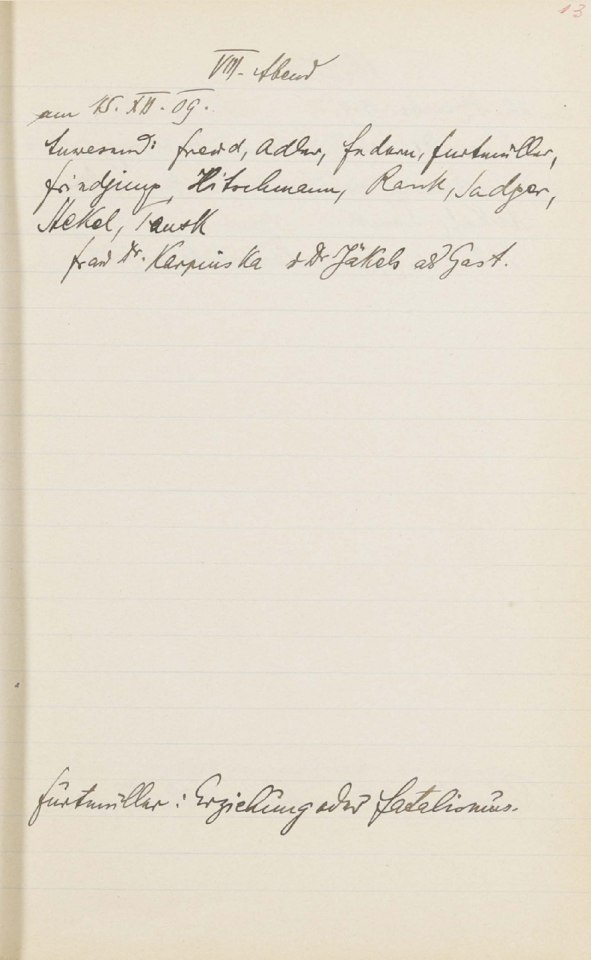 13
VIII. Abend
am 15. XII. 09.
Anwesend: Freud, Adler, Federn, Furtmüller,
Friedjung, Hitschmann, Rank, Sadger,
Stekel, Tausk
Frau Dr. Karpinska u Dr Jekels als Gast.
Furtmüller: Erziehung oder Fatalismus.